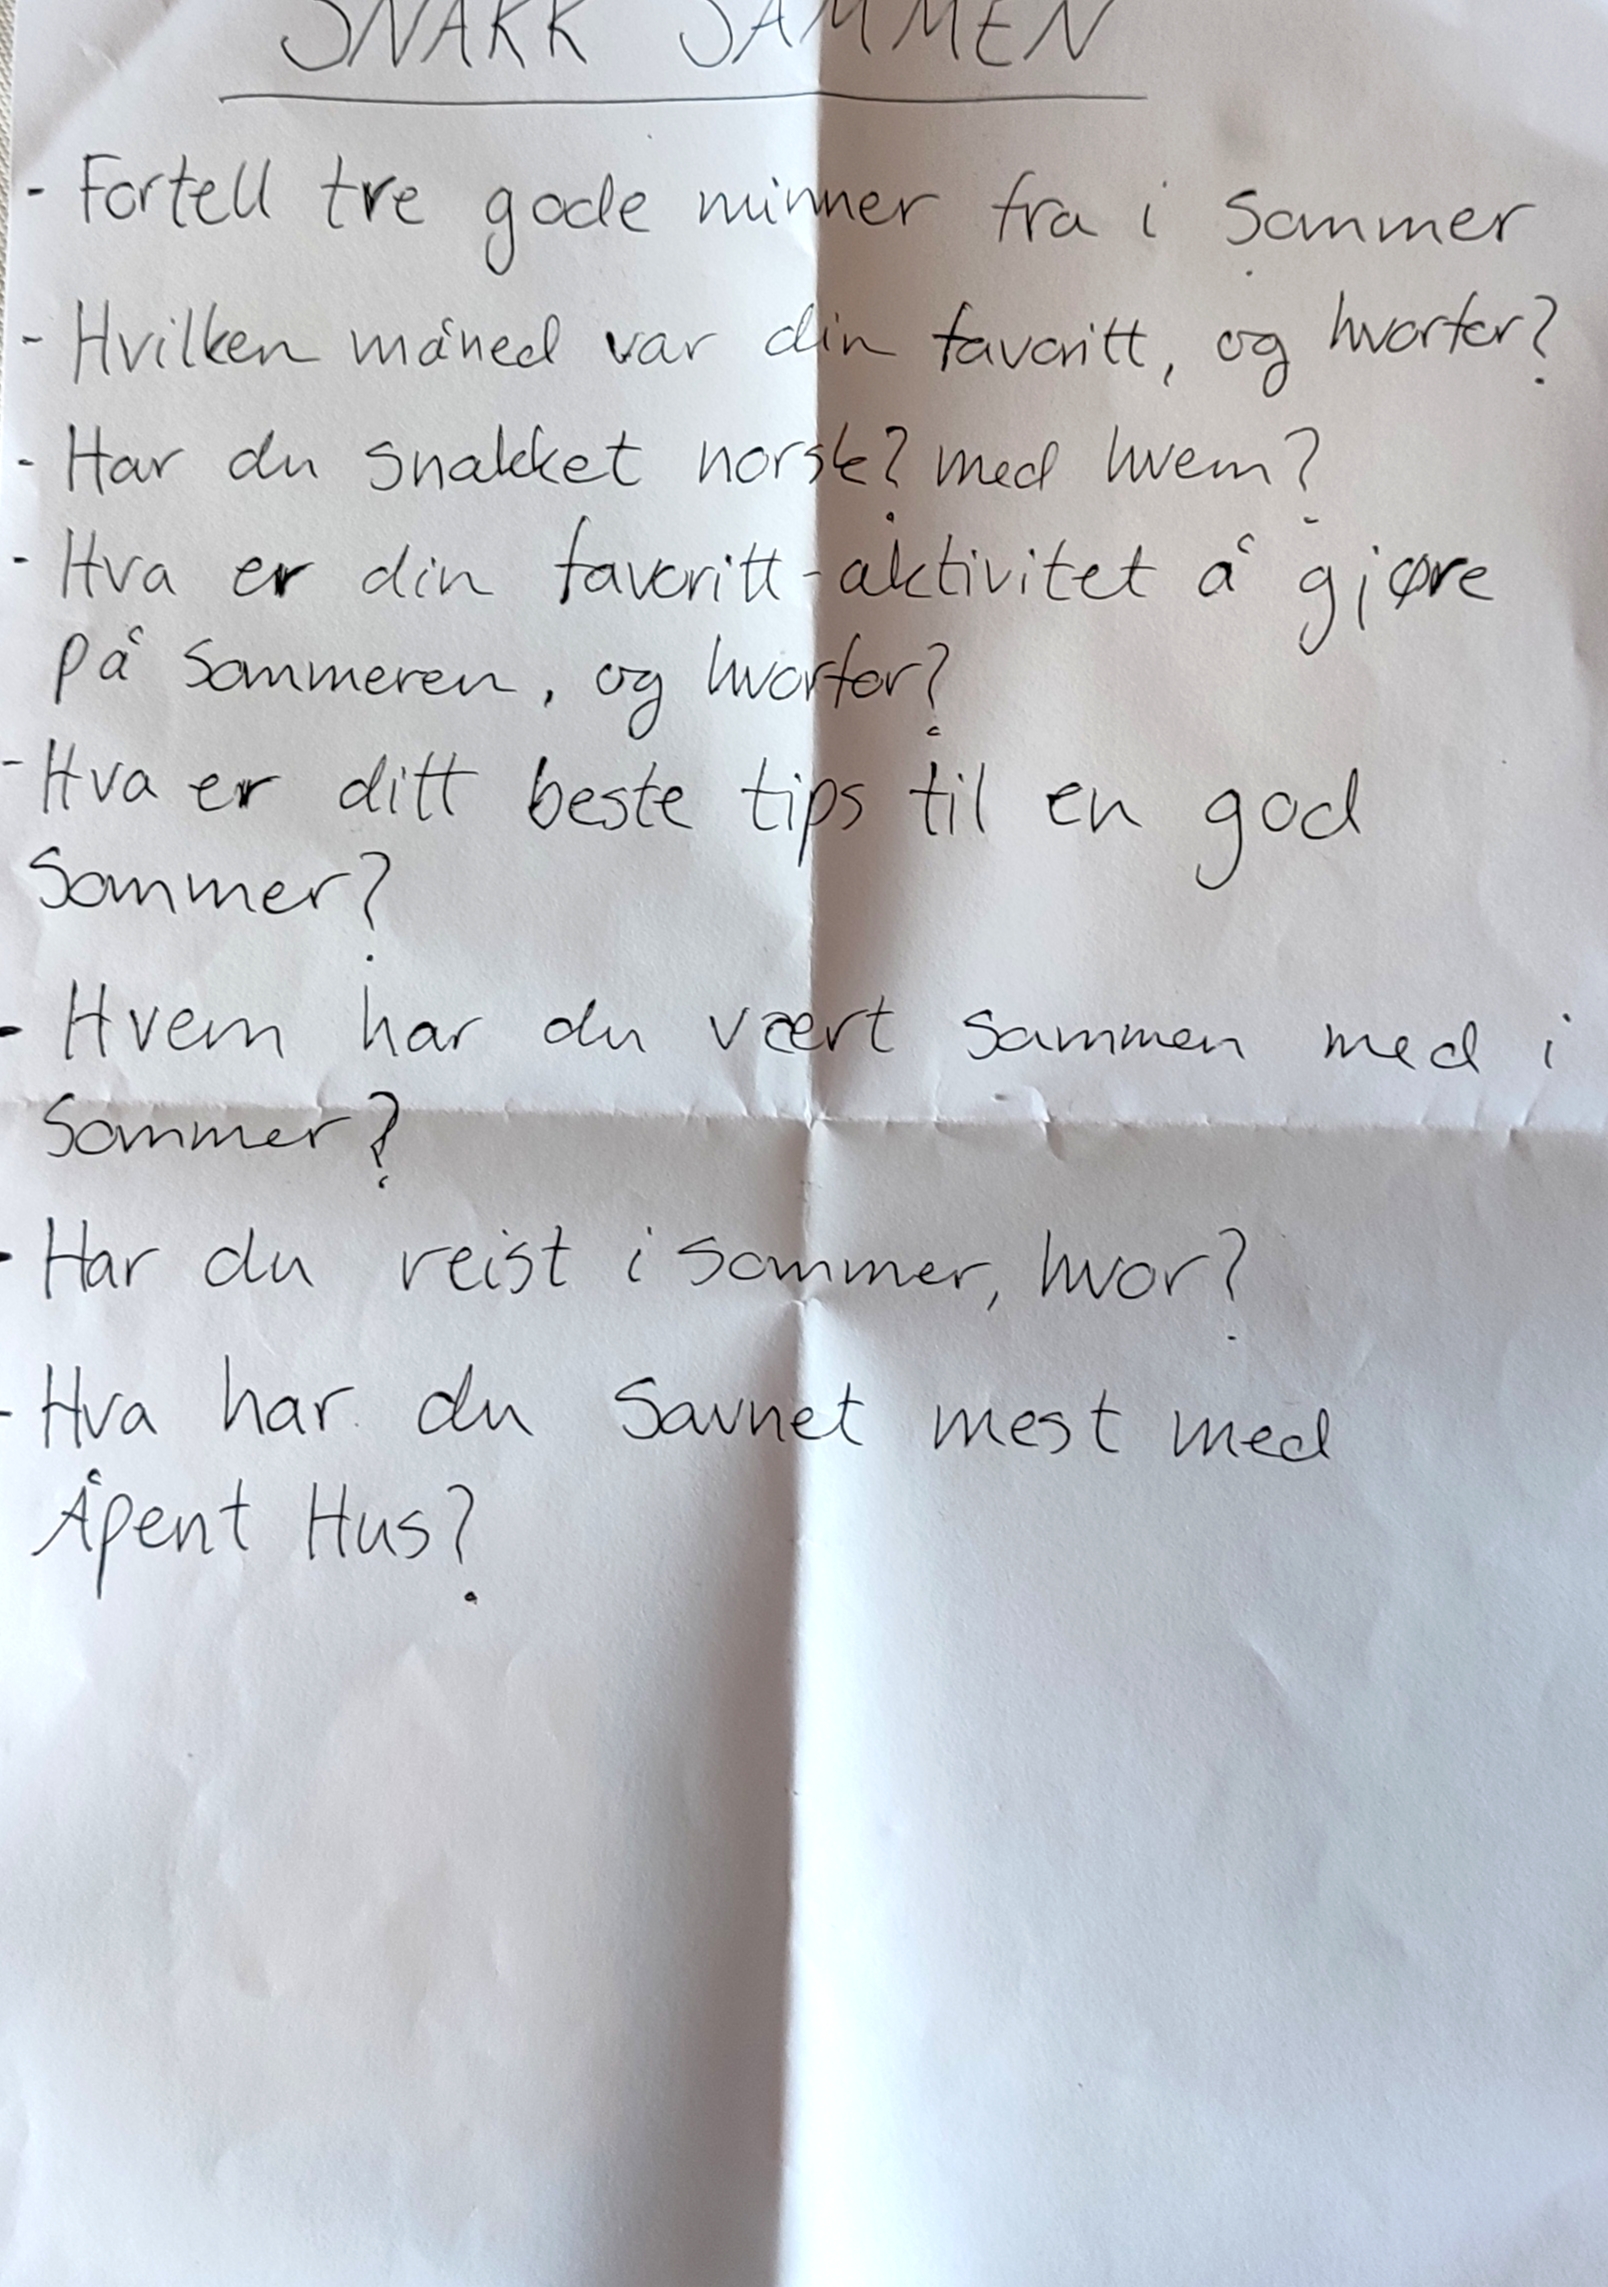 SNAKK SAMMEN
- Fortell tre gode minner fra i sommer
- Hvilken måned var din favoritt, og hvorfor?
- Har du snakket norsk? med hvem?
- Hva er din favoritt-aktivitet å gjøre
på sommeren, og hvorfor?
- Hva er ditt beste tips til en god
sommer?
- Hvem har du vært sammen med i
sommer?
- Har du reist i sommer, hvor?
- Hva har du savnet mest med
Åpent Hus?